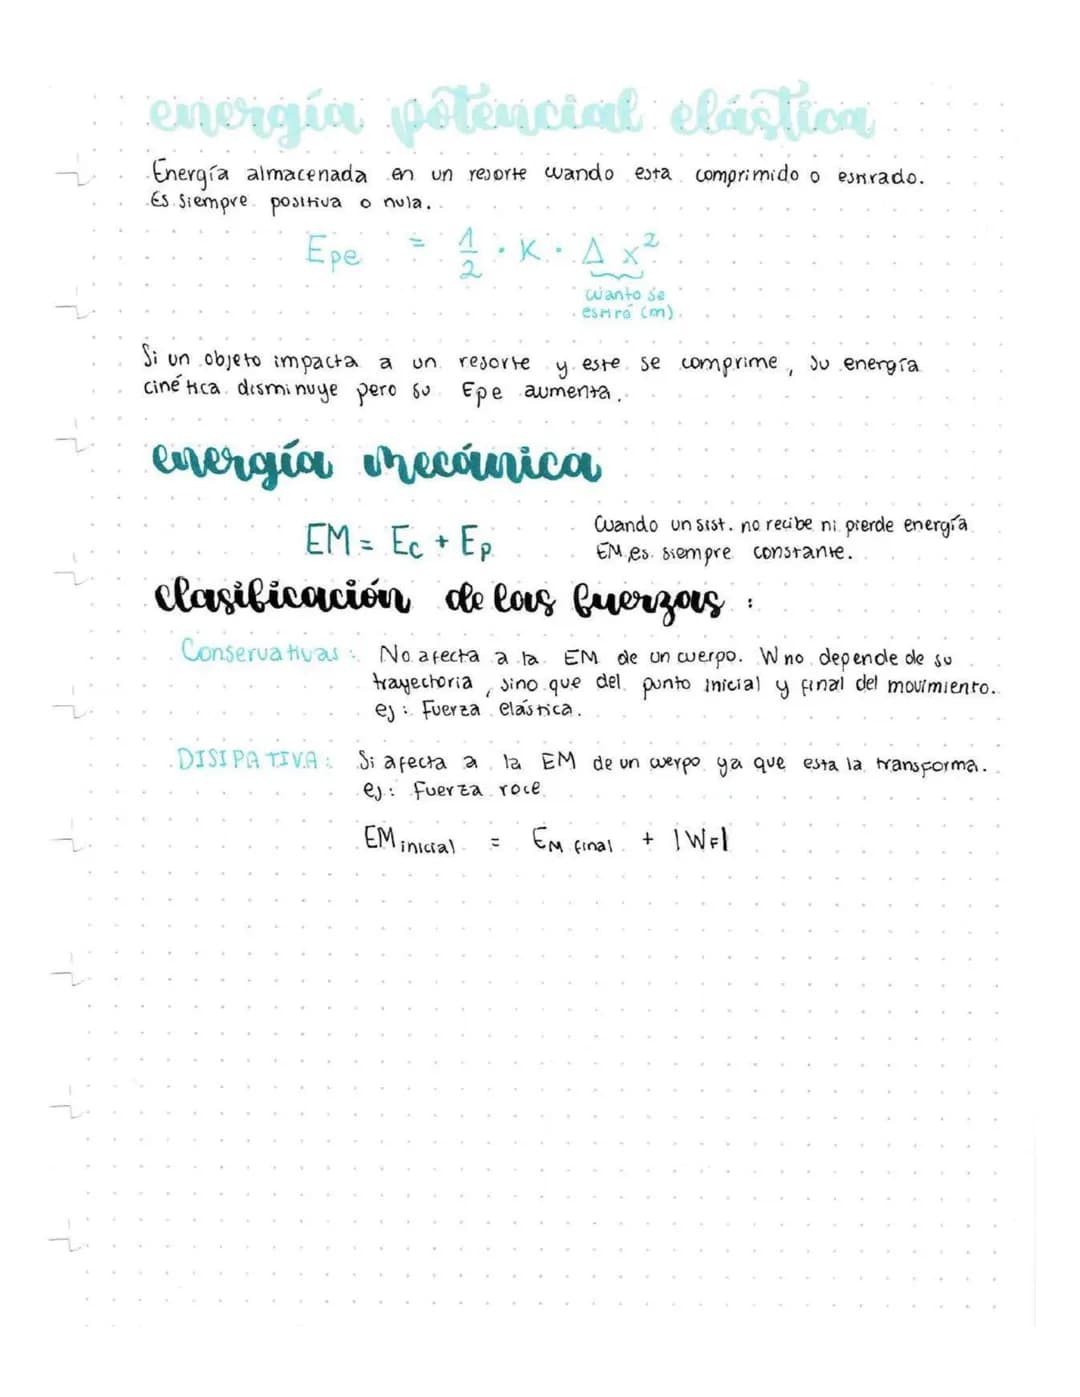 energía potencial elástica
Energía almacenada en un resorte cuando esta comprimido o estirado.
Es siempre positiva o nula.
Epe = 1/2 · K · Δ x²
cuanto se
estiró (m)
Si un objeto impacta a un resorte y este se comprime, su energía
cinética disminuye pero su Epe aumenta.
energía mecánica
EM = Ec + Ep
Cuando un sist. no recibe ni pierde energía
EM es siempre constante.
clasificación de las fuerzas :
Conservativas : No afecta a la EM de un cuerpo. W no depende de su
trayectoria, sino que del punto inicial y final del movimiento.
ej : Fuerza elástica.
DISIPATIVA : Si afecta a la EM de un cuerpo ya que esta la transforma.
ej : Fuerza roce
EM inicial = EM final + |WF|